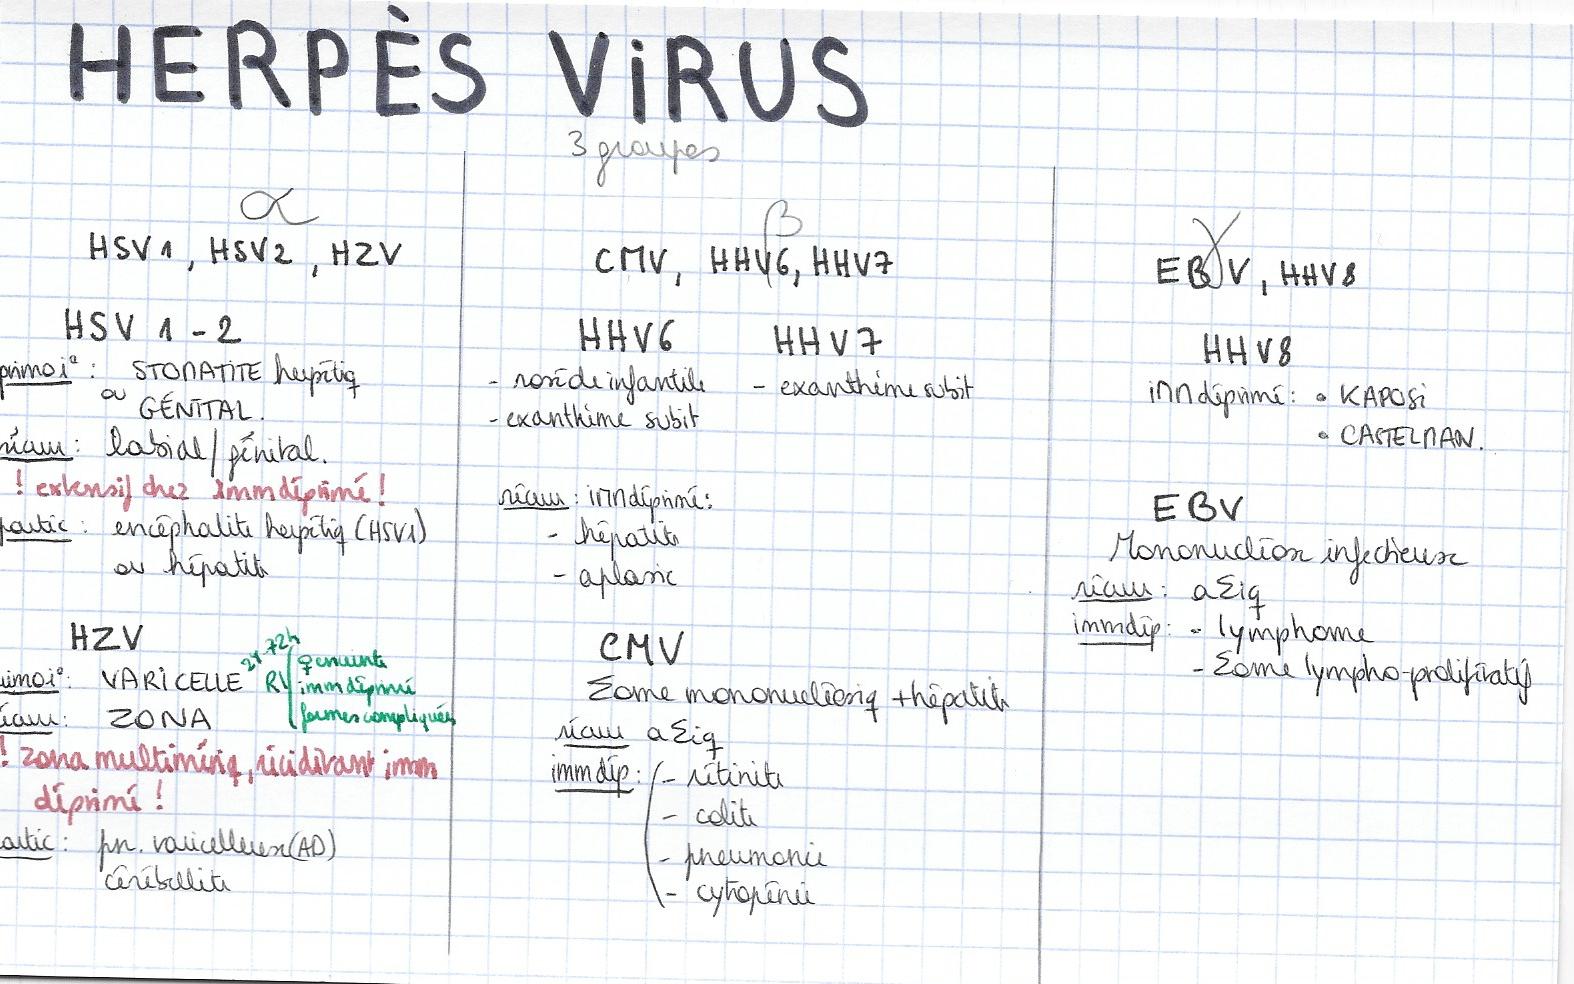 HERPÈS ViRUS
3 groupes
α
HSV1, HSV2, HZV
HSV 1-2
primoi° : STOMATITE herpétiq
ou GÉNITAL.
récurr : labial/génital.
! extensif chez immdéprimé !
partic : encéphalite herpétiq (HSV1)
ou hépatite
HZV
rimoi° : VARICELLE
24-72h
RV
♀ enceinte
immdéprimé
formes compliquées
écurr : ZONA
! zona multimériq, récidivant imm
déprimé !
artic : pn. varicelleuse (AD)
cérébellite
β
CMV, HHV6, HHV7
HHV6
- roséole infantile
- exanthème subit
HHV7
- exanthème subit
récurr : immdéprimé :
- hépatite
- aplasie
CMV
Σome mononucléosiq + hépatite
récurr aΣiq
immdép : - rétinite
- colite
- pneumonie
- cytopénie
γ
EBV, HHV8
HHV8
immdéprimé : • KAPOSi
• CASTELMAN.
EBV
Mononucléose infectieuse
récurr : aΣiq
immdép : - lymphome
- Σome lympho-prolifératif